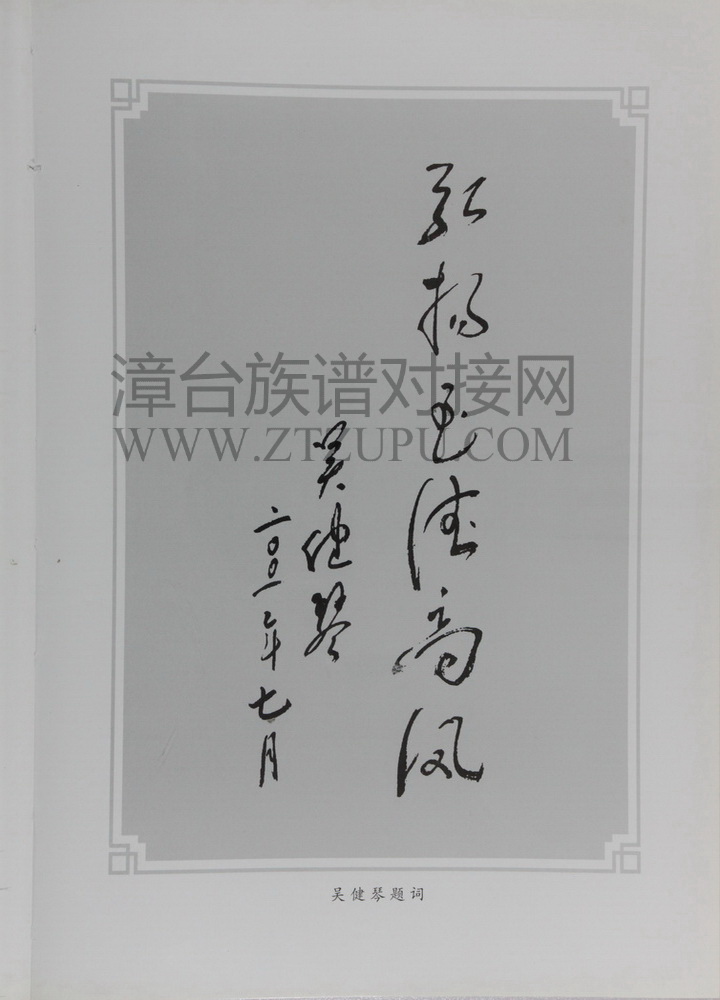 弘扬至德高风
吴健琴
二〇〇一年七月
漳台族谱对接网
WWW.ZTZUPU.COM
吴健琴题词